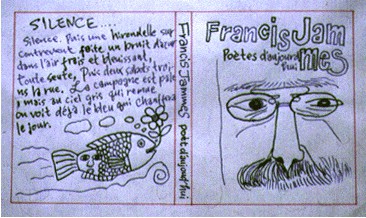 SILENCE....
Silence. Puis une hirondelle sur
contrevent faite un bruit d'azur
dans l'air frais et bleuissant,
toute seule. Puis deux sabots traî-
ns la rue. La campagne est pâle
mais au ciel gris qui remue
on voit déjà le bleu qui chauffera
le jour.
Francis Jammes poète d'aujourd'hui
Francis Jam
mes
Poètes d'aujourd
'hui